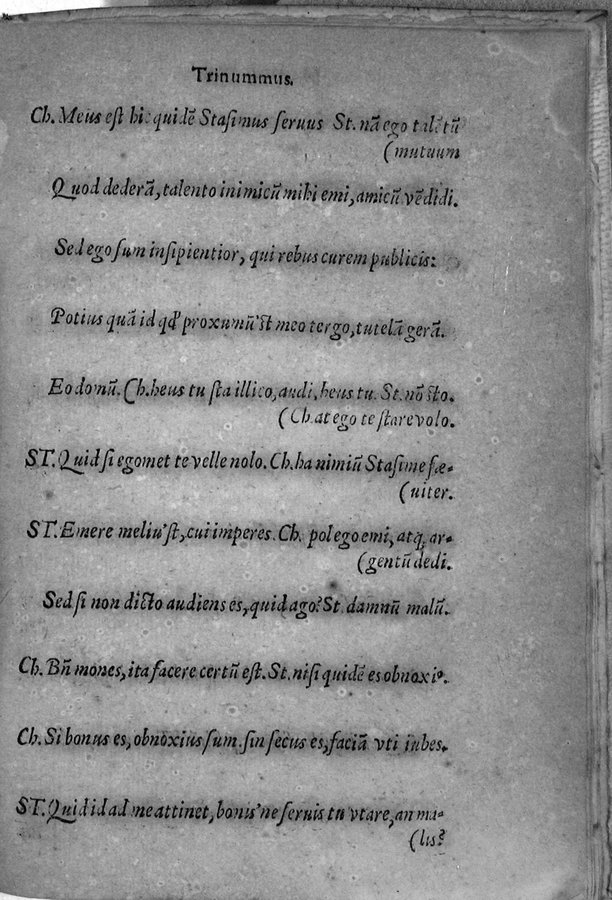 Trinummus.
Ch. Meus est hic quidē Stasimus seruus St. nā ego talētū
(mutuum
Quod dederā, talento inimicū mihi emi, amicū vēdidi.
Sed ego sum insipientior, qui rebus curem publicis:
Potius quā id qđ proxumū'st meo tergo, tutelā gerā.
Eo domū. Ch. heus tu sta illico, audi, heus tu. St. nō sto.
(Ch. at ego te stare volo.
ST. Quid si egomet te velle nolo. Ch. ha nimiū Stasime sæ-
(uiter.
ST. Emere meliu'st, cui imperes. Ch. pol ego emi, atq; ar-
(gentū dedi.
Sed si non dicto audiens es, quid ago? St. damnū malū.
Ch. Bñ mones, ita facere certū est. St. nisi quidē es obnoxiꝰ.
Ch. Si bonus es, obnoxius sum. sin secus es, faciā vti iubes.
ST. Quid id ad me attinet, bonis'ne seruis tu vtare, an ma-
(lis?